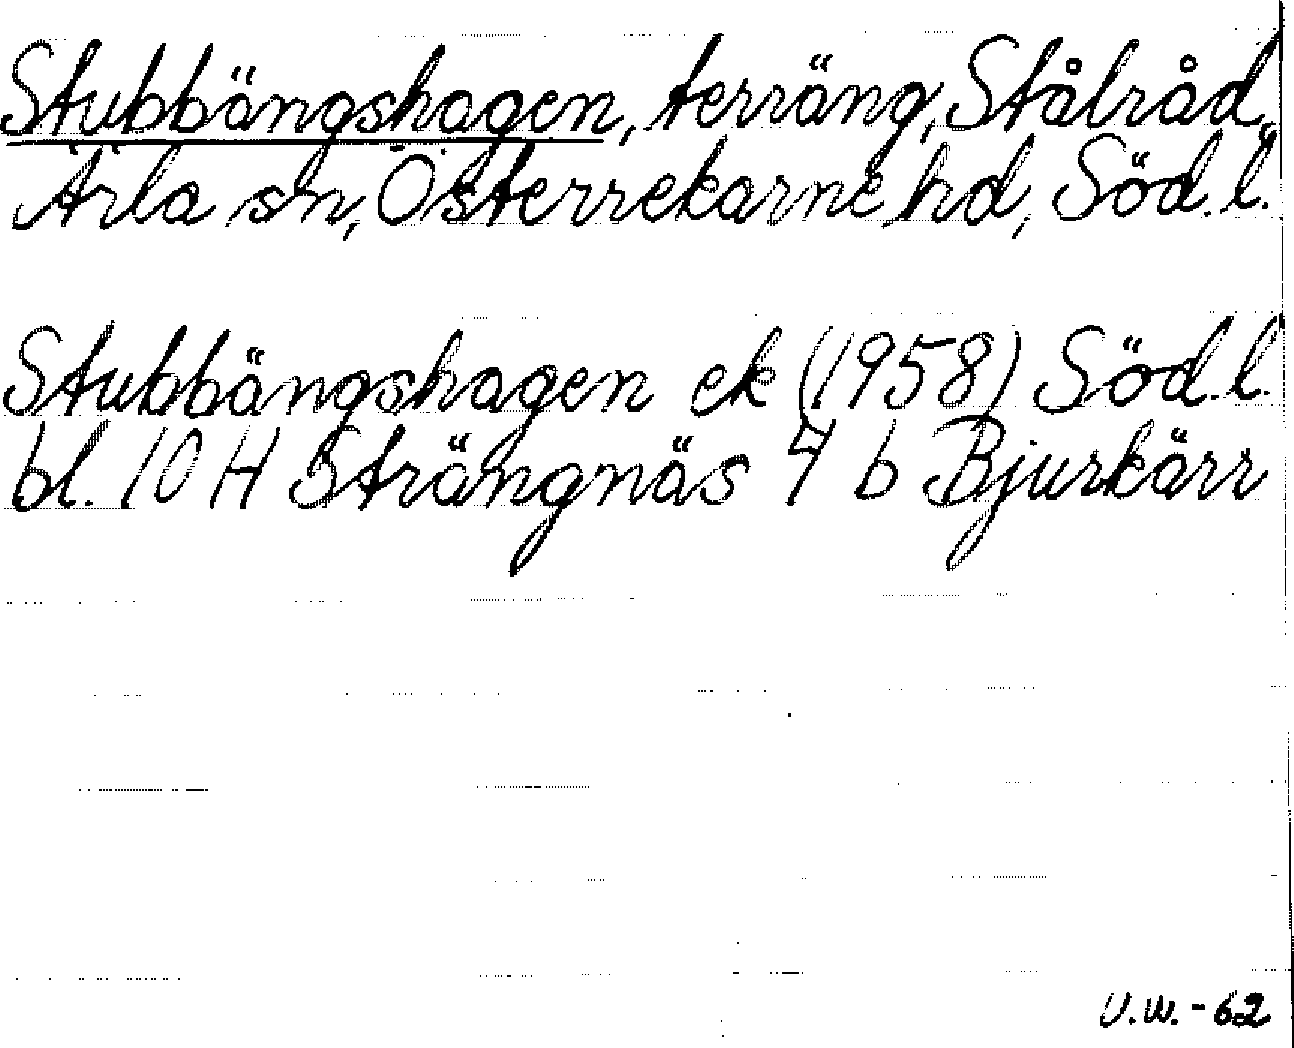 Stubbängshagen, terräng, Stålråd,
Ärla sn, Österrekarne hd, Söd.l.
Stubbängshagen ek (1958) Söd.l.
bl. 10 H Strängnäs 4 b Bjurkärr
U.W.-62